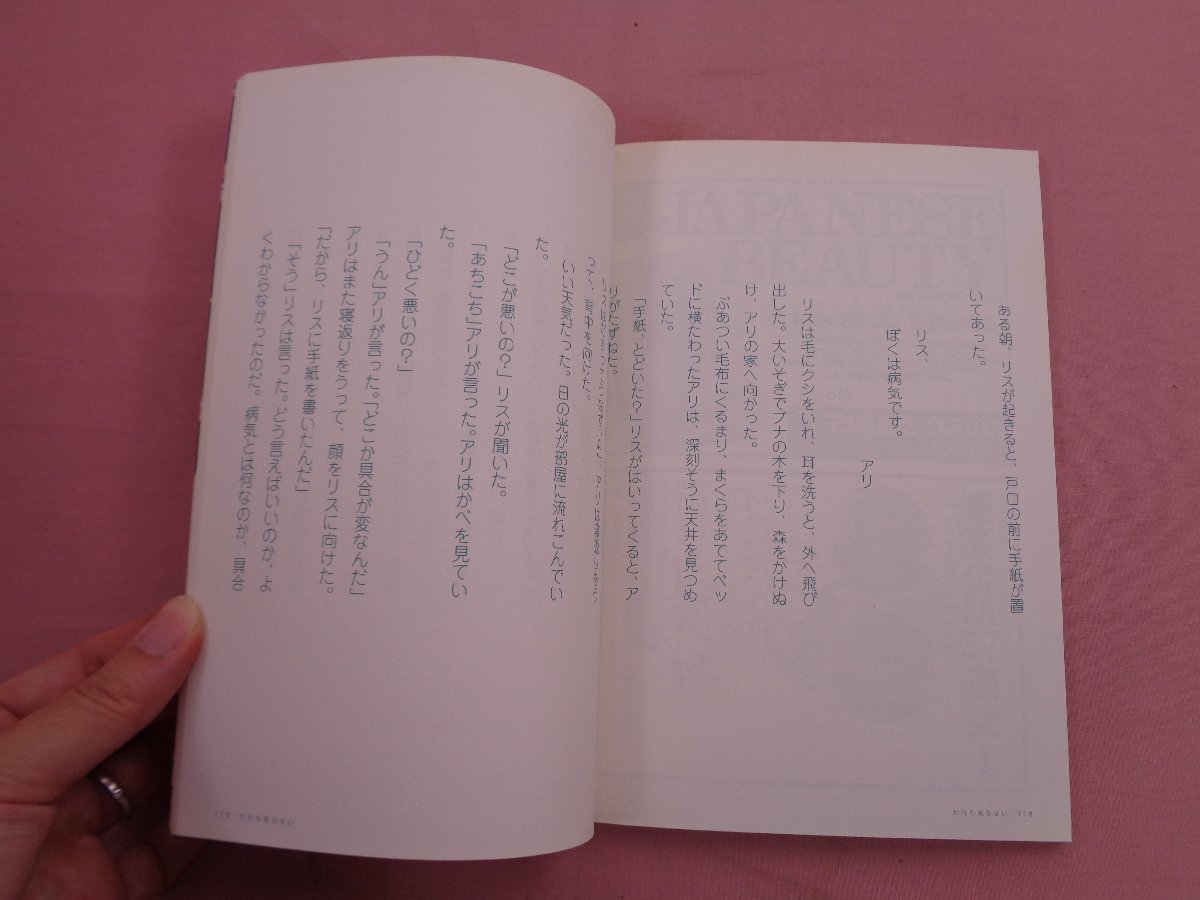 ある朝、リスが起きると、戸口の前に手紙が置
いてあった。
リス、
ぼくは病気です。
アリ
リスは毛にクシをいれ、耳を洗うと、外へ飛び
出した。大いそぎでブナの木を下り、森をかけぬ
け、アリの家へ向かった。
ぶあつい毛布にくるまり、まくらをあててベッ
ドに横たわったアリは、深刻そうに天井を見つめ
ていた。
「手紙、とどいた?」リスがはいってくると、ア
リがたずねた。
って、背中を向けた。
いい天気だった。日の光が部屋に流れこんでい
た。
「どこが悪いの?」リスが聞いた。
「あちこち」アリが言った。アリはかべを見てい
た。
「ひどく悪いの?」
「うん」アリが言った。「どこか具合が変なんだ」
アリはまた寝返りをうって、顔をリスに向けた。
「だから、リスに手紙を書いたんだ」
「そう」リスは言った。どう言えばいいのか、よ
くわからなかったのだ。病気とは何なのか、具合
だれも死なない・118
119・だれも死なない
JAPANESE
BEAUTY